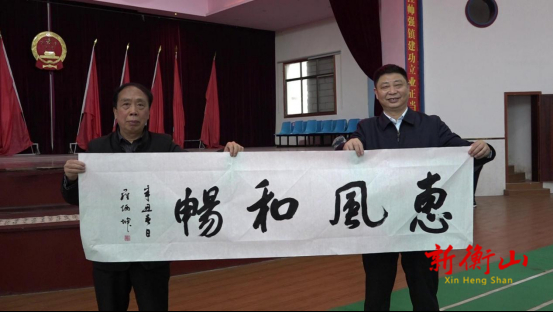 强镇建功立业正当
惠風和暢
辛丑春日
新衡山
Xin Heng Shan